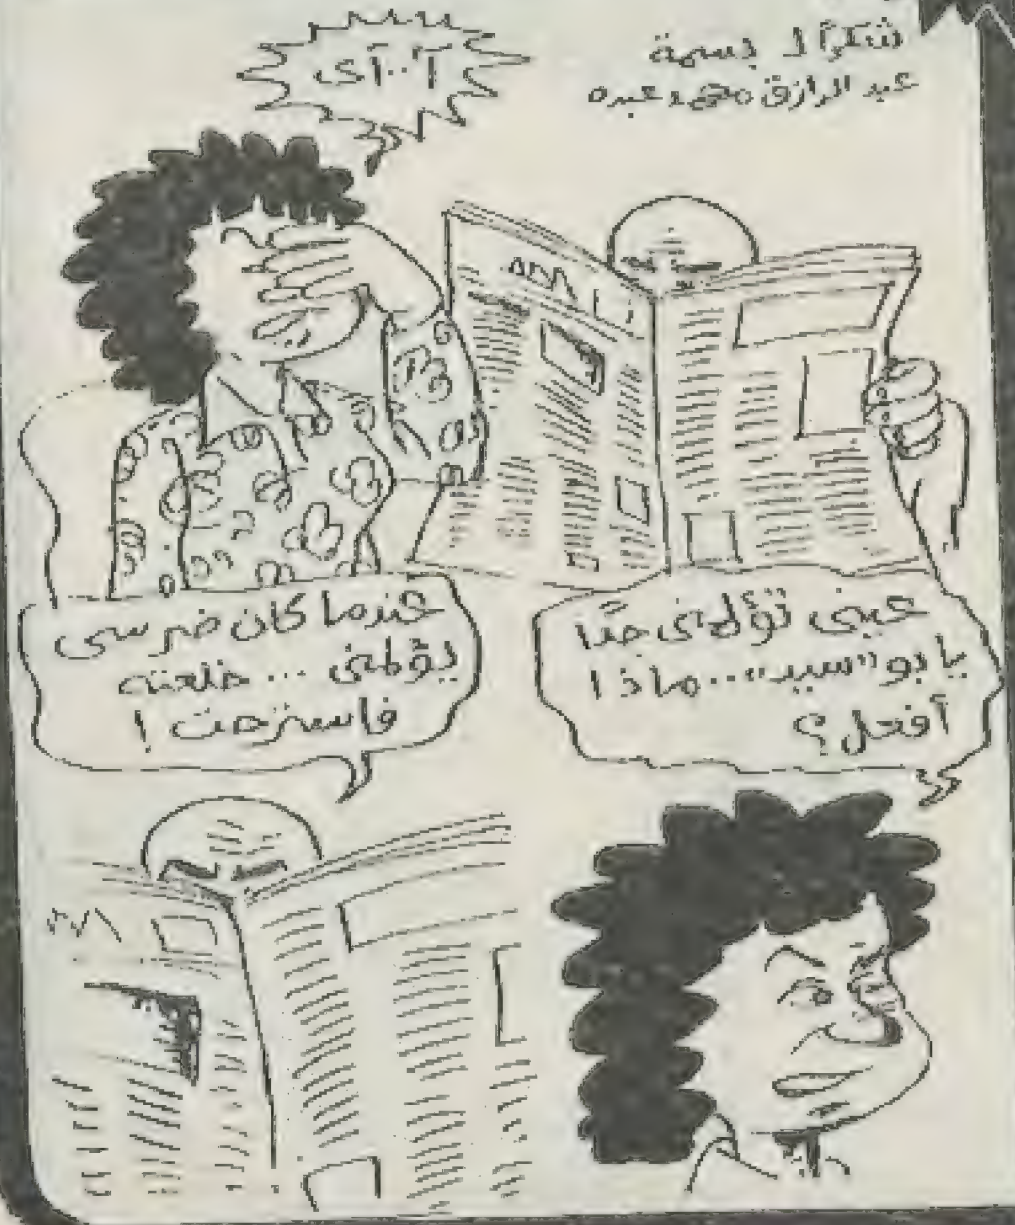 شكرًا لـ بسمة
عبد الرازق
آ..آى
عينى تؤلمنى جدًا
يا بو "سيد"... ماذا
أفعل؟
عندما كان ضرسى
يؤلمنى ... خلعته
فاسترحت !